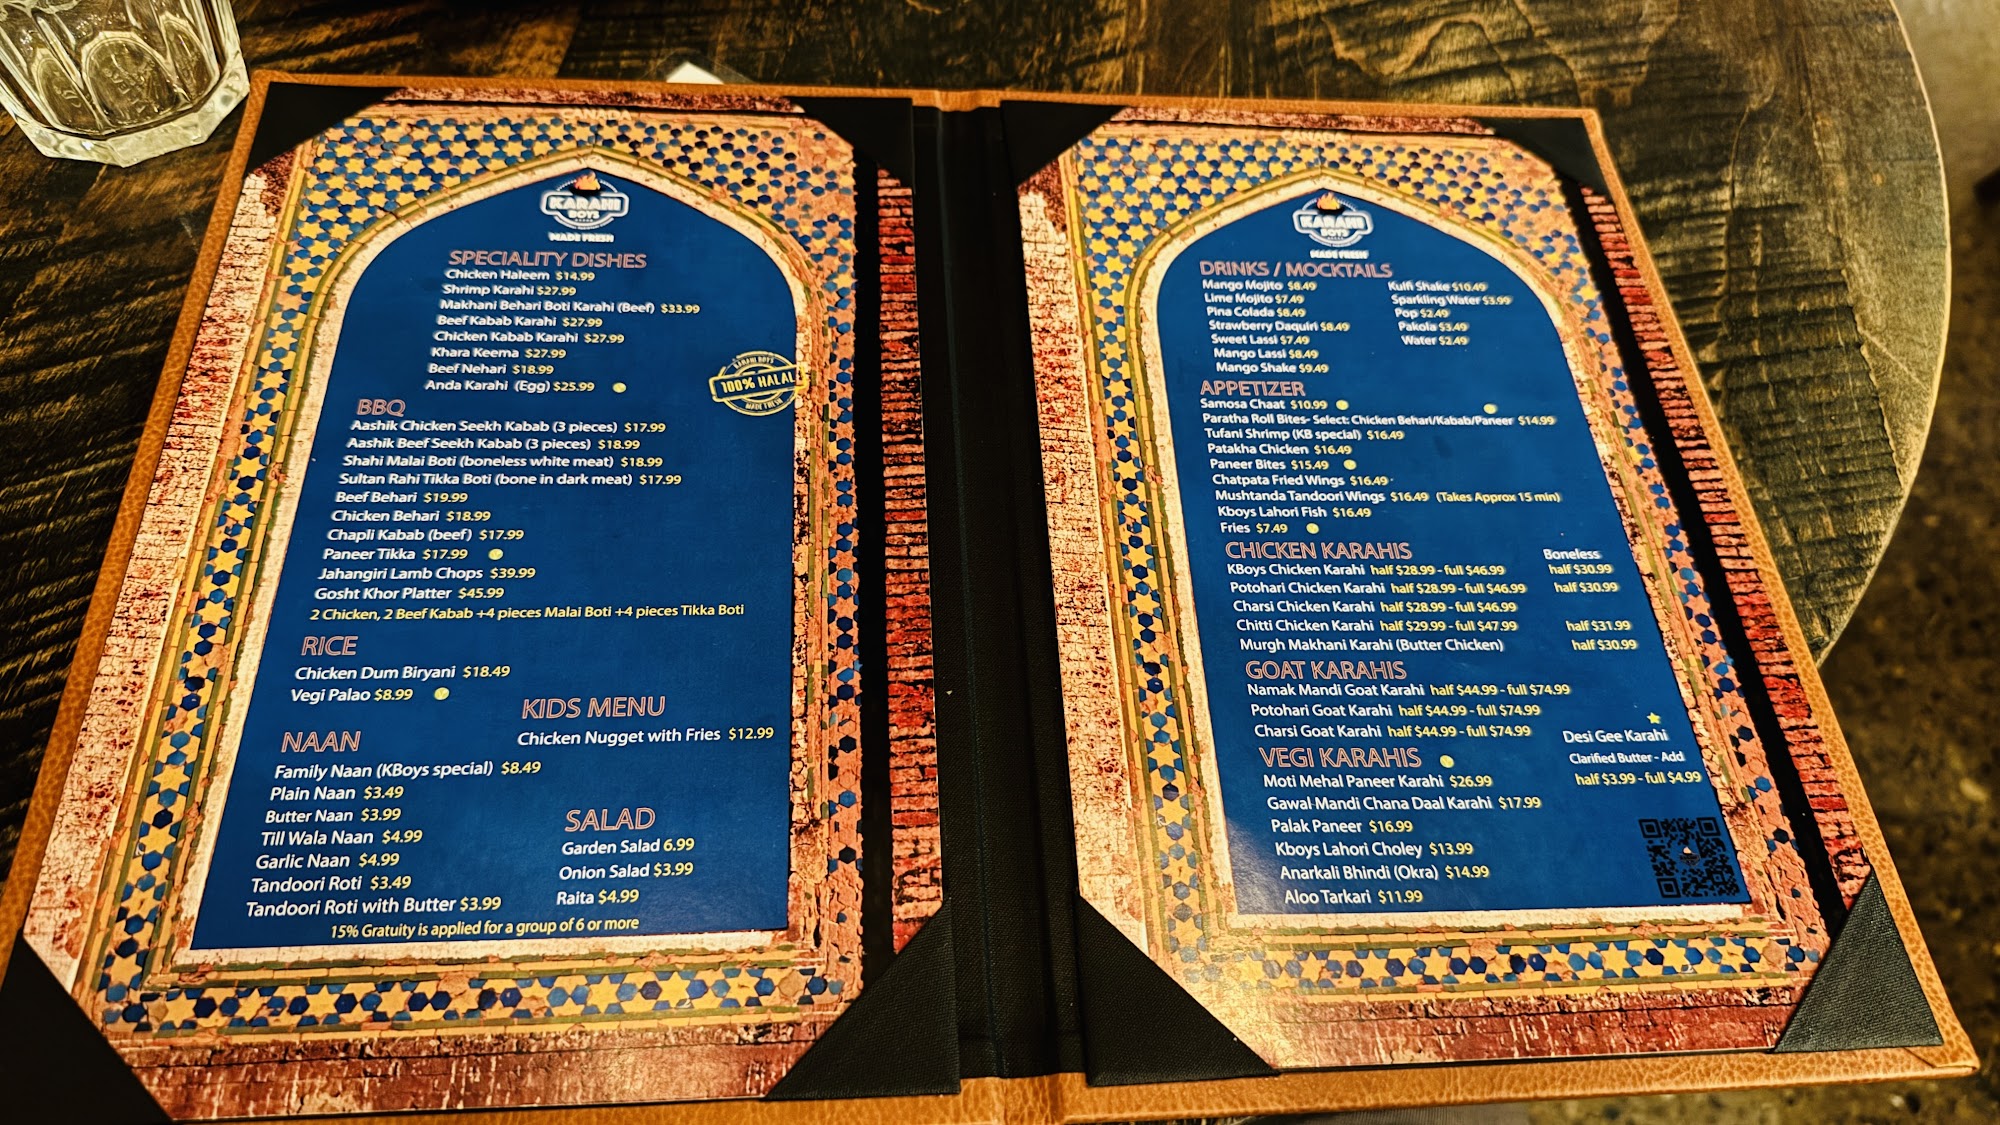 CANADA
KARAHI
BOYS
MADE FRESH
SPECIALITY DISHES
Chicken Haleem $14.99
Shrimp Karahi $27.99
Makhani Behari Boti Karahi (Beef) $33.99
Beef Kabab Karahi $27.99
Chicken Kabab Karahi $27.99
Khara Keema $27.99
Beef Nehari $18.99
Anda Karahi (Egg) $25.99
KARAHI BOYS
100% HALAL
MADE FRESH
BBQ
Aashik Chicken Seekh Kabab (3 pieces) $17.99
Aashik Beef Seekh Kabab (3 pieces) $18.99
Shahi Malai Boti (boneless white meat) $18.99
Sultan Rahi Tikka Boti (bone in dark meat) $17.99
Beef Behari $19.99
Chicken Behari $18.99
Chapli Kabab (beef) $17.99
Paneer Tikka $17.99
Jahangiri Lamb Chops $39.99
Gosht Khor Platter $45.99
2 Chicken, 2 Beef Kabab +4 pieces Malai Boti +4 pieces Tikka Boti
RICE
Chicken Dum Biryani $18.49
Vegi Palao $8.99
KIDS MENU
Chicken Nugget with Fries $12.99
NAAN
Family Naan (KBoys special) $8.49
Plain Naan $3.49
Butter Naan $3.99
Till Wala Naan $4.99
Garlic Naan $4.99
Tandoori Roti $3.49
Tandoori Roti with Butter $3.99
SALAD
Garden Salad 6.99
Onion Salad $3.99
Raita $4.99
15% Gratuity is applied for a group of 6 or more
CANADA
KARAHI
BOYS
MADE FRESH
DRINKS / MOCKTAILS
Mango Mojito $8.49
Lime Mojito $7.49
Pina Colada $8.49
Strawberry Daquiri $8.49
Sweet Lassi $7.49
Mango Lassi $8.49
Mango Shake $9.49
Kulfi Shake $10.49
Sparkling Water $3.99
Pop $2.49
Pakola $3.49
Water $2.49
APPETIZER
Samosa Chaat $10.99
Paratha Roll Bites- Select: Chicken Behari/Kabab/Paneer $14.99
Tufani Shrimp (KB special) $16.49
Patakha Chicken $16.49
Paneer Bites $15.49
Chatpata Fried Wings $16.49
Mushtanda Tandoori Wings $16.49 (Takes Approx 15 min)
Kboys Lahori Fish $16.49
Fries $7.49
CHICKEN KARAHIS Boneless
KBoys Chicken Karahi half $28.99 - full $46.99 half $30.99
Potohari Chicken Karahi half $28.99 - full $46.99 half $30.99
Charsi Chicken Karahi half $28.99 - full $46.99
Chitti Chicken Karahi half $29.99 - full $47.99 half $31.99
Murgh Makhani Karahi (Butter Chicken) half $30.99
GOAT KARAHIS
Namak Mandi Goat Karahi half $44.99 - full $74.99
Potohari Goat Karahi half $44.99 - full $74.99
Charsi Goat Karahi half $44.99 - full $74.99
Desi Gee Karahi
Clarified Butter - Add
half $3.99 - full $4.99
VEGI KARAHIS
Moti Mehal Paneer Karahi $26.99
Gawal Mandi Chana Daal Karahi $17.99
Palak Paneer $16.99
Kboys Lahori Choley $13.99
Anarkali Bhindi (Okra) $14.99
Aloo Tarkari $11.99